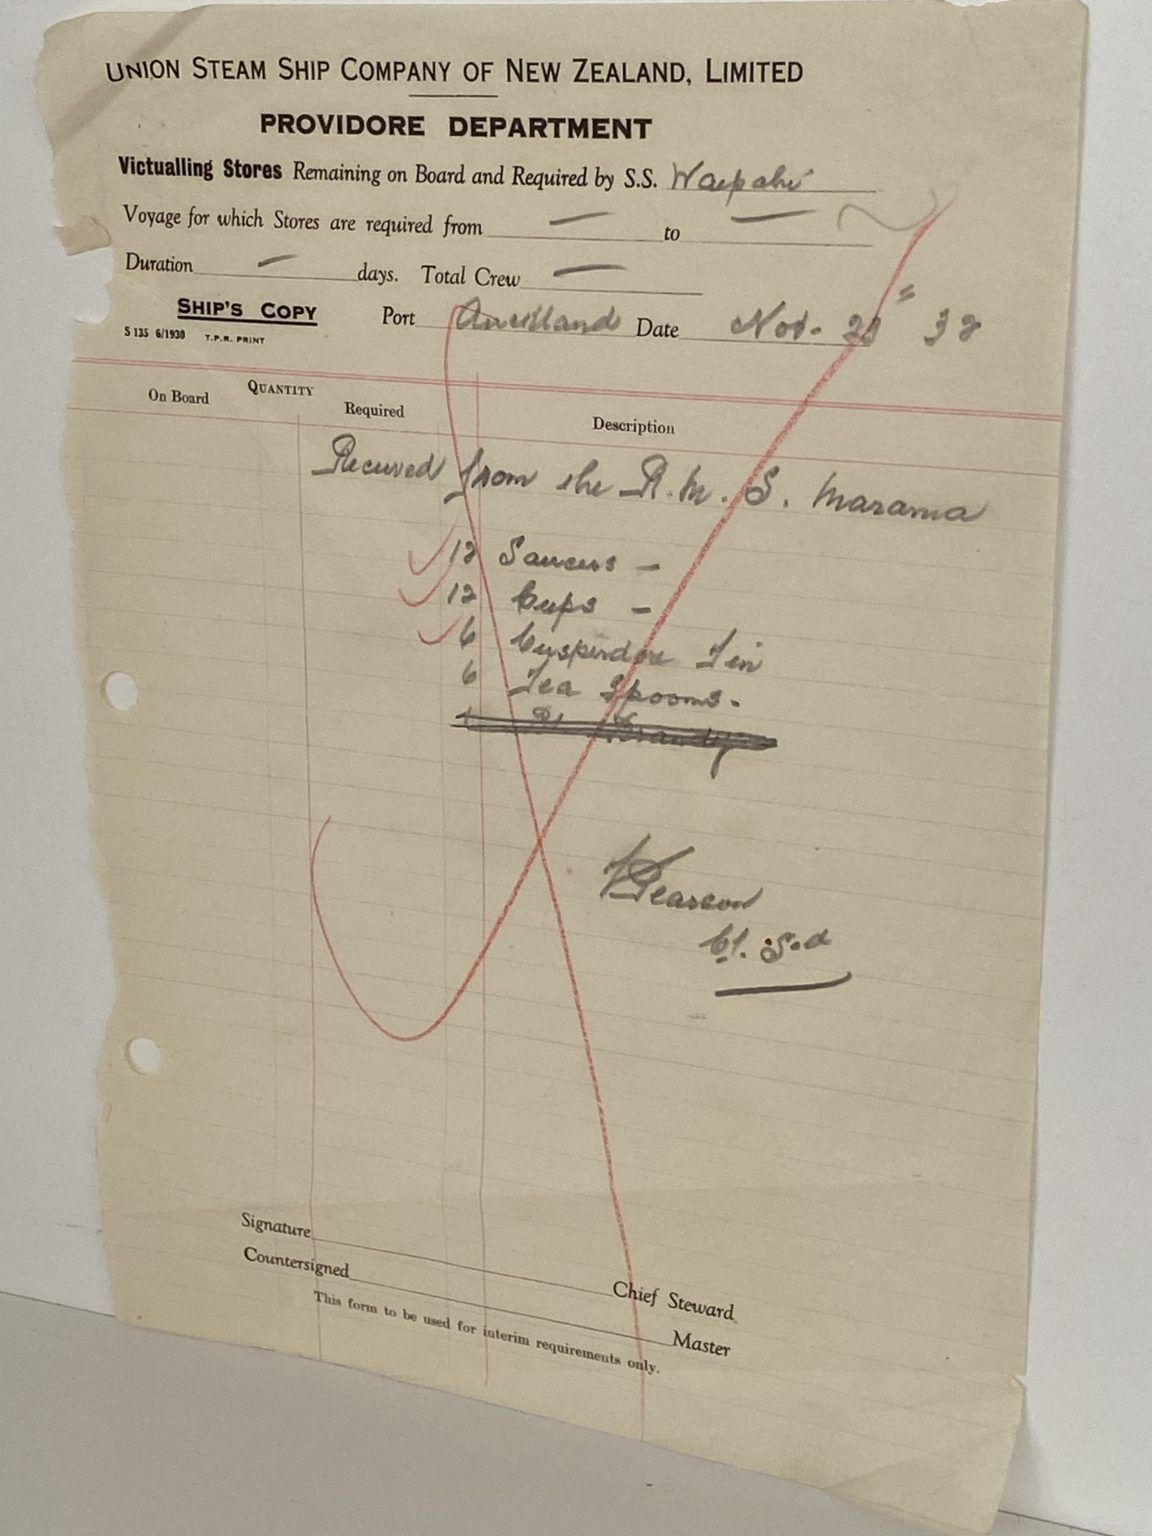 UNION STEAM SHIP COMPANY OF NEW ZEALAND, LIMITED
PROVIDORE DEPARTMENT
Victualling Stores Remaining on Board and Required by S.S. Waipahi
Voyage for which Stores are required from — to —
Duration — days. Total Crew —
SHIP'S COPY Port Auckland Date Nov. 23 " 32
S 135 6/1930 T.P.R. PRINT
QUANTITY
On Board Required Description
Received from the R.M.S. Marama
12 Saucers -
12 Cups -
6 Cuspidore Tin
6 Tea Spoons.
Brandy
Pearson
Ch. S.d
Signature Chief Steward
Countersigned Master
This form to be used for interim requirements only.